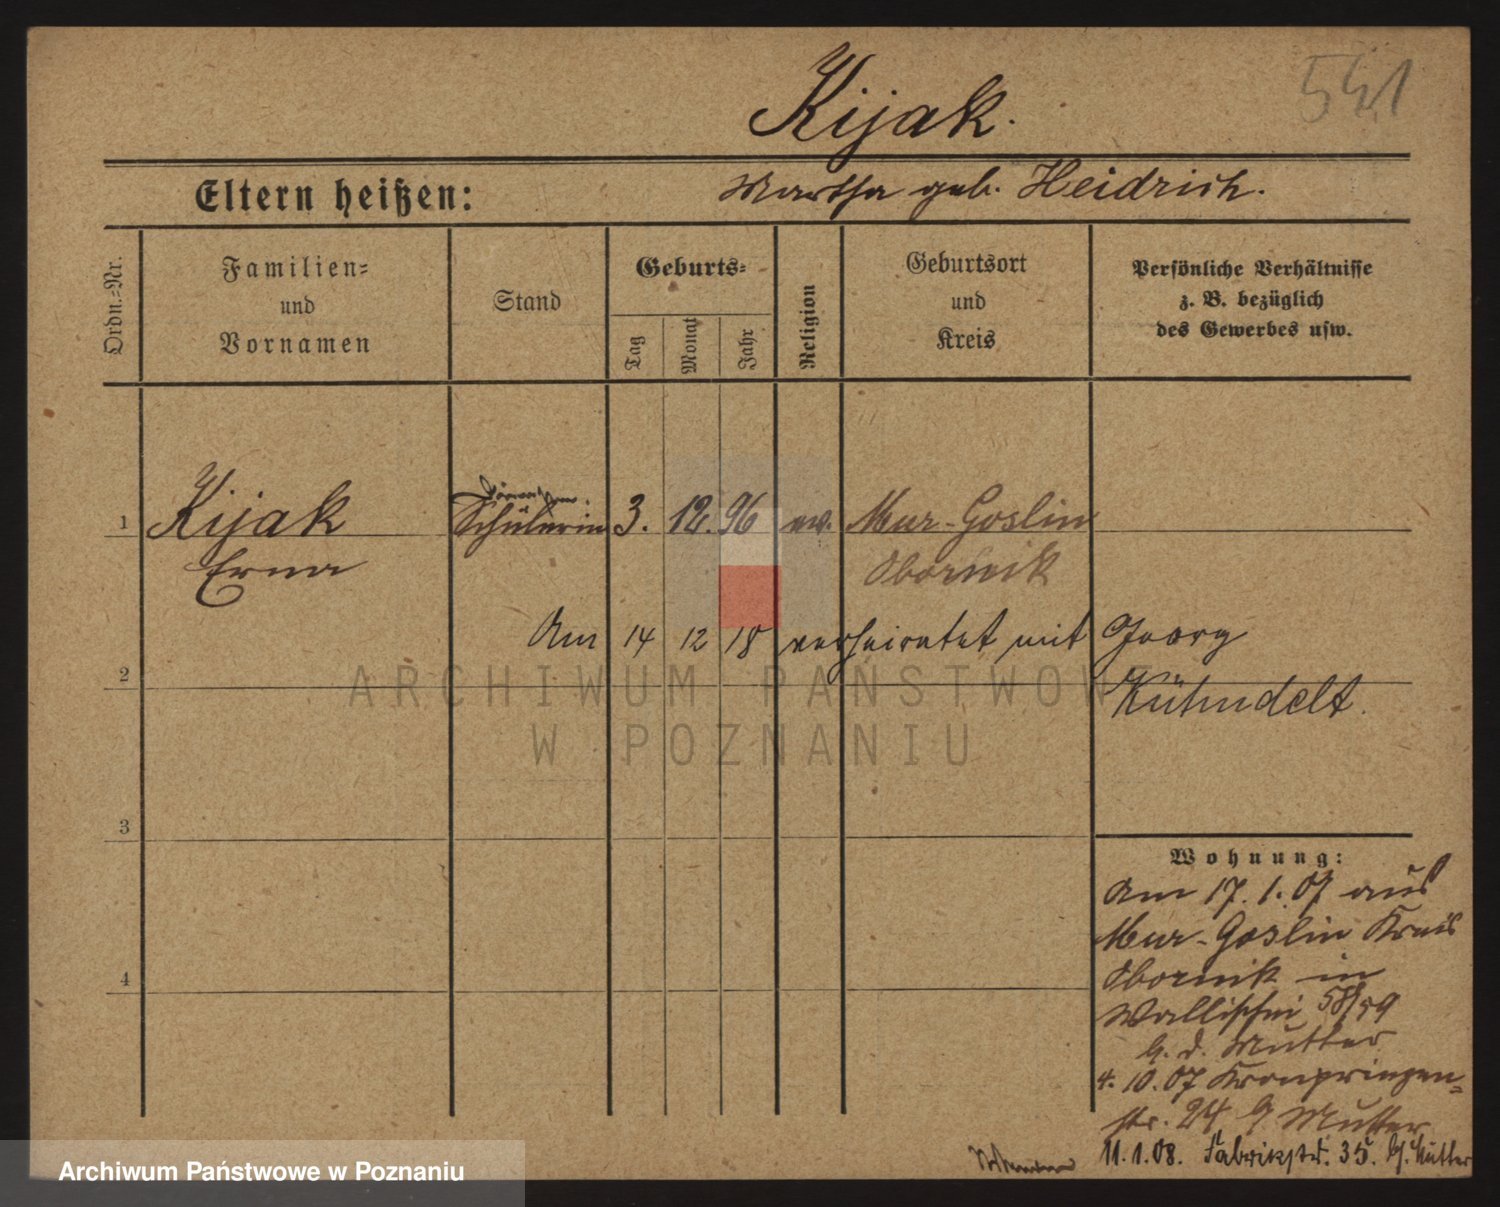 Kijak.
541
Eltern heißen:
Martha geb. Heidrich.
Ordn.=Nr.
Familien=
und
Vornamen
Stand
Geburts=
Tag
Monat
Jahr
Religion
Geburtsort
und
Kreis
Persönliche Verhältnisse
z. B. bezüglich
des Gewerbes usw.
1 Kijak Schülerin 3. 12. 96 ev. Mur-Goslin
Erna Obornik
Am 14 12 18 verheiratet mit Georg
2
Kühndelt.
ARCHIWUM PAŃSTWOWE
W POZNANIU
3
Wohnung:
Am 17. 1. 07 aus
Mur-Goslin Kreis
4
Obornik in
Wallischei 58/59
b. d. Mutter
4. 10. 07 Kronprinzen=
str. 24 b Mutter
11. 1. 08. Fabrikstr. 35. b. Mutter
Archiwum Państwowe w Poznaniu